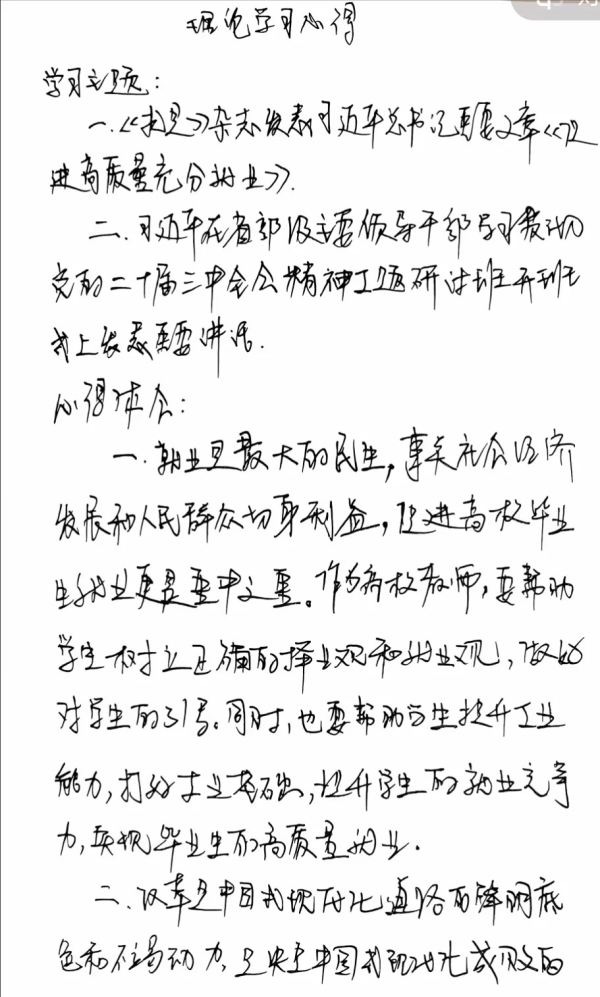 理论学习心得
学习主题：
一.《求是》杂志发表习近平总书记重要文章《促
进高质量充分就业》.
二.习近平在省部级主要领导干部学习贯彻
党的二十届三中全会精神专题研讨班开班
式上发表重要讲话.
心得体会：
一.就业是最大的民生,事关社会经济
发展和人民群众切身利益,促进高校毕业
生就业更是重中之重。作为高校教师,要帮助
学生树立正确的择业观和就业观,做好
对学生的引导。同时,也要帮助学生提升专业
能力,打好专业基础,提升学生的就业竞争
力,实现毕业生的高质量就业.
二.改革是中国式现代化道路的鲜明底
色和不竭动力,是决定中国式现代化成败的